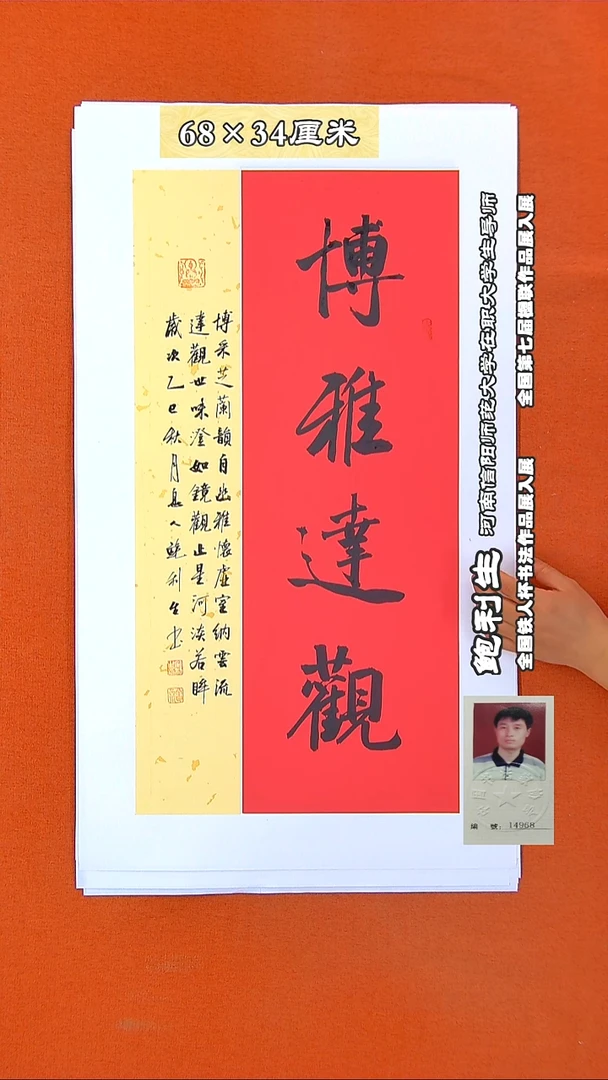 68×34厘米
博雅達觀
博采芝蘭韻自幽雅懷虛室納雲流
達觀世味澄如鏡觀止星河淡若眸
歲次乙巳秋月
鮑利生書
全国第七届楹联作品展入展
全国铁人杯书法作品展入展
鲍利生
河南信阳师范大学在职大学生导师
編 號：14968